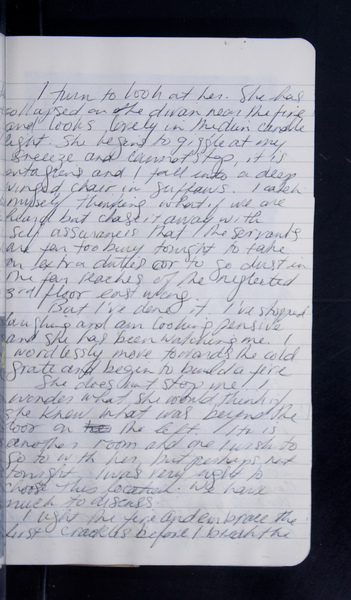 I turn to look at her. She has
collapsed on the divan near the fire
and looks lovely in the dim candle
light. She begins to giggle at my
sneeze and cannot stop, it is
contagious and I fall into a deep
winged chair in guffaws. I catch
myself thinking what if we are
heard but chase it away with
self assurances that the servants
are far too busy tonight to take
on extra duties or to go dust in
the far reaches of the neglected
3rd floor east wing.
But I've done it. I've stopped
laughing and am looking pensive
and she has been watching me. I
wordlessly move towards the cold
grate and begin to build a fire
She does not stop me. I
wonder what she would think if
she knew what was beyond the
door on the left. It is
another room and one I wish to
go to with her, but perhaps not
tonight. I was very right to
choose this location. We have
much to discuss.
I light the fire and embrace the
first crackles before I brush the